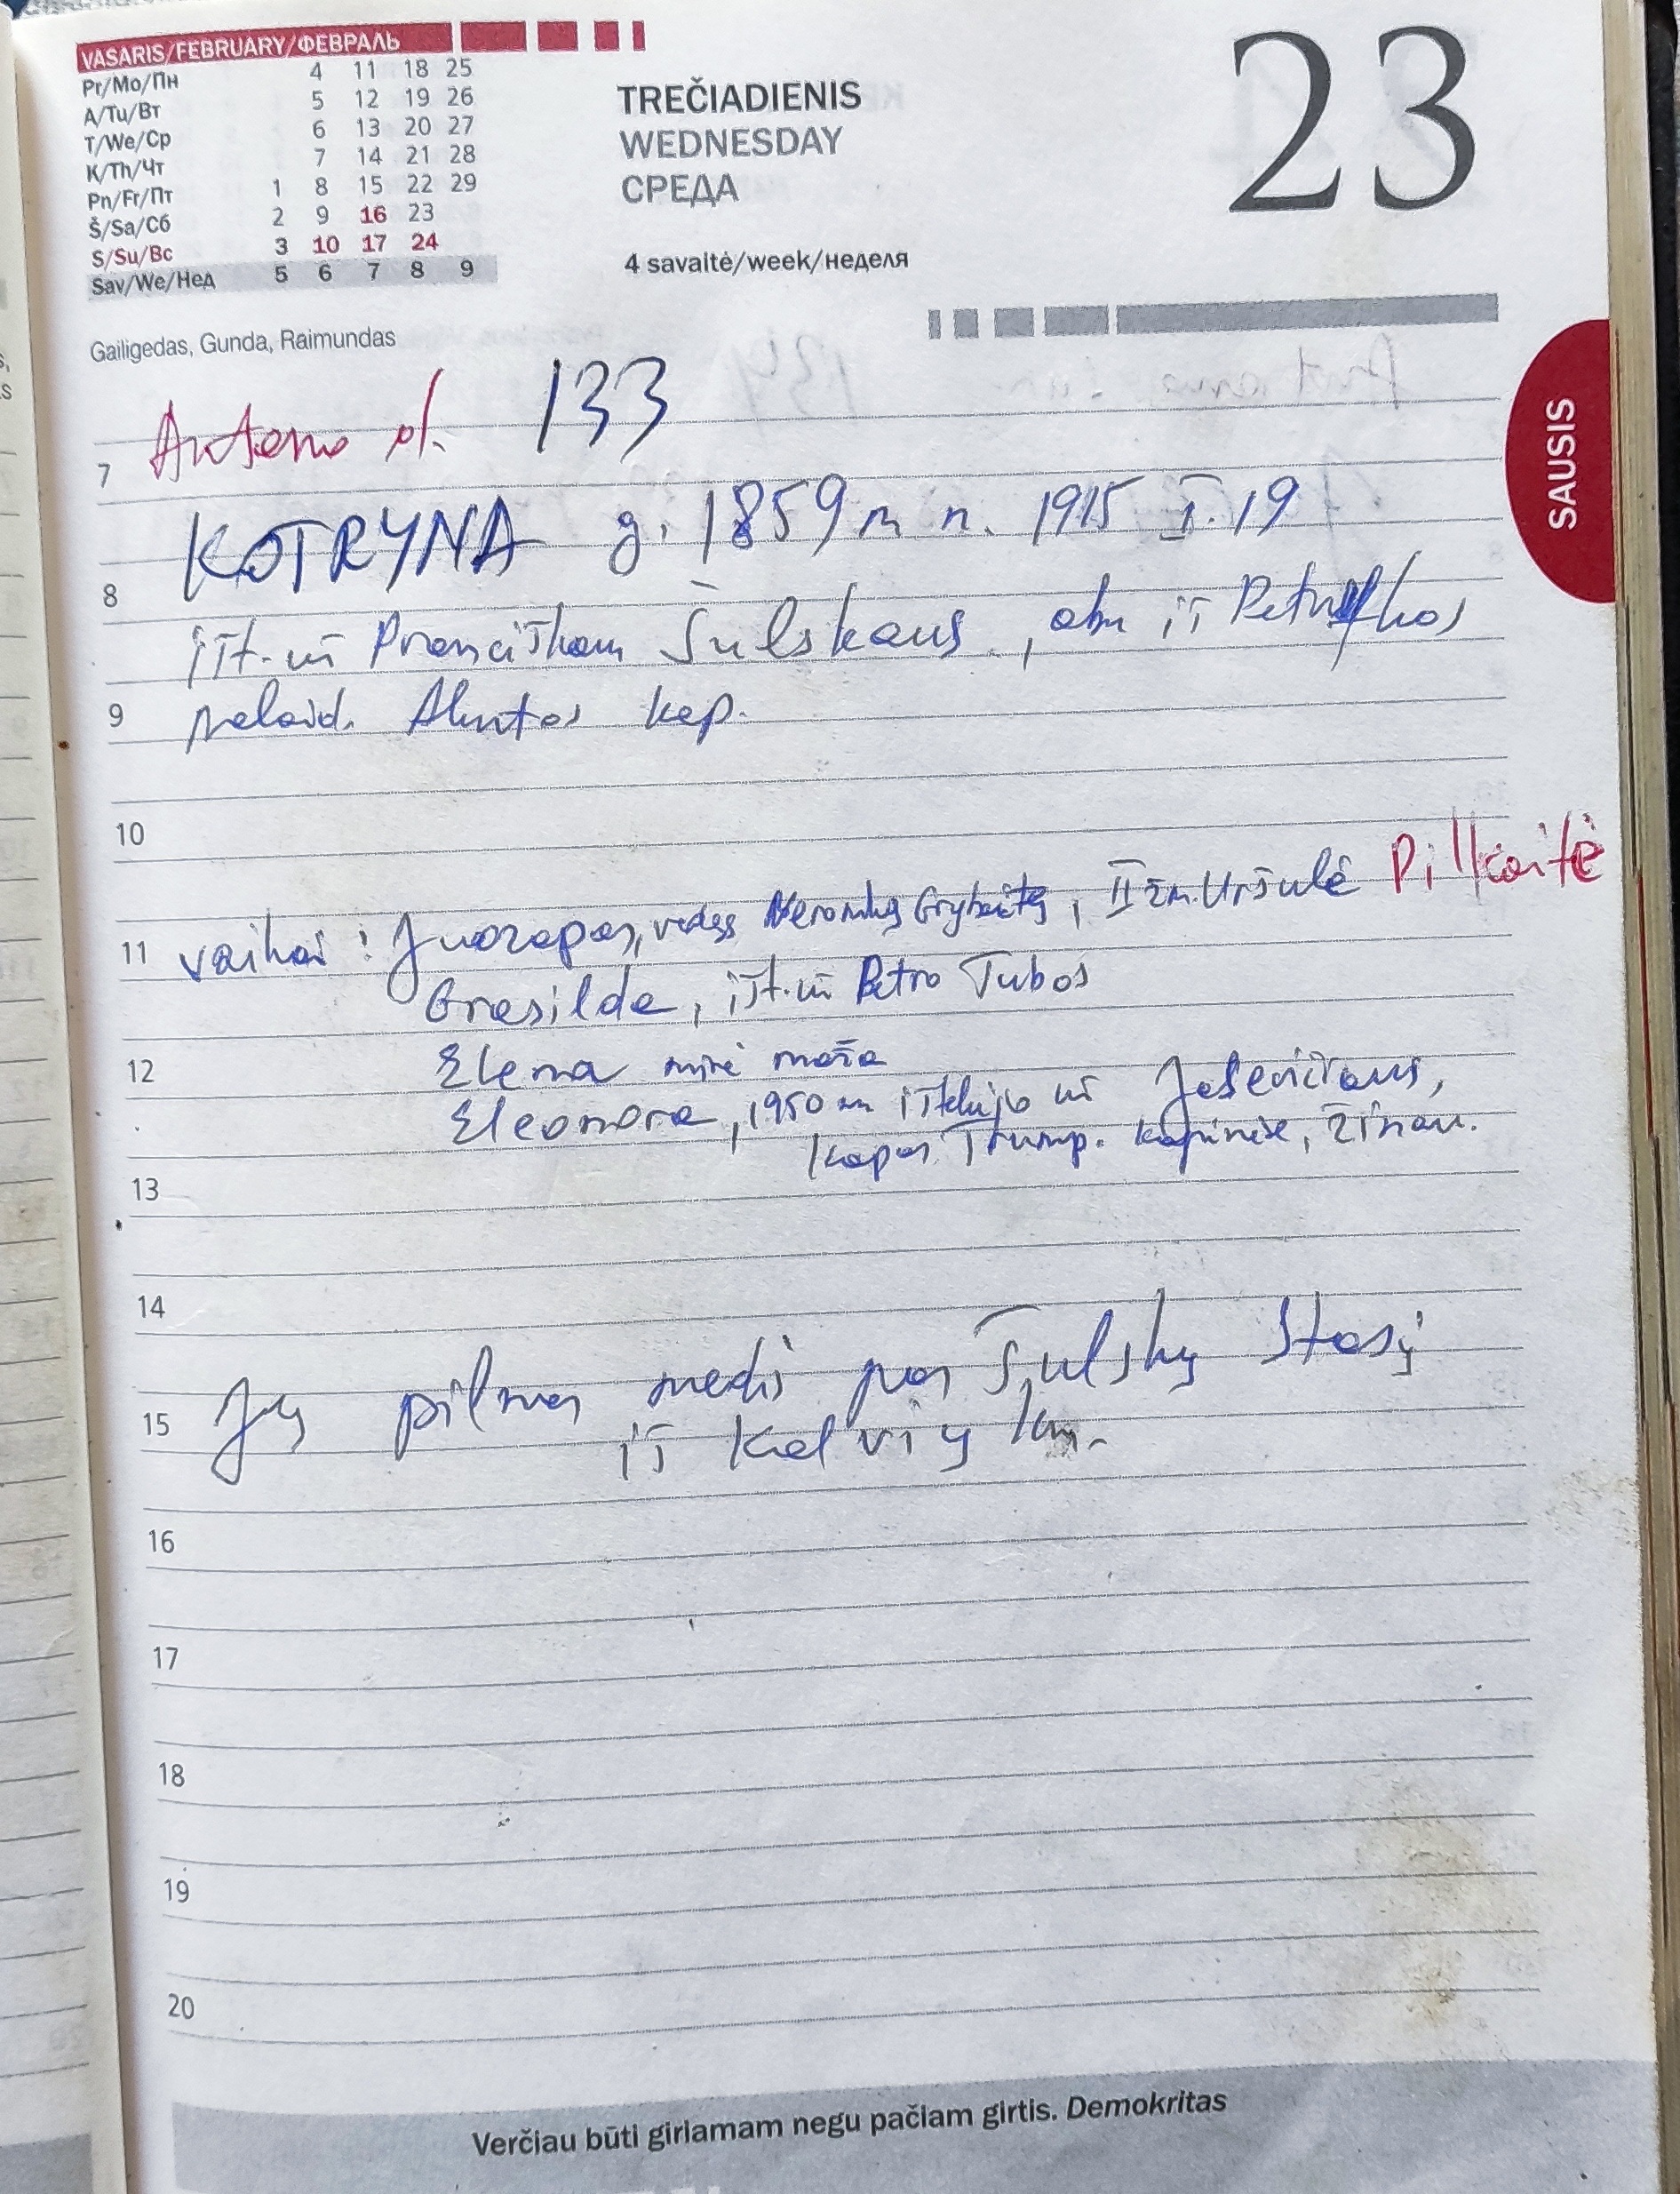 VASARIS/FEBRUARY/ФЕВРАЛЬ
Pr/Mo/Пн 4 11 18 25
A/Tu/Вт 5 12 19 26
T/We/Ср 6 13 20 27
K/Th/Чт 7 14 21 28
Pn/Fr/Пт 1 8 15 22 29
Š/Sa/Сб 2 9 16 23
S/Su/Вс 3 10 17 24
Sav/We/Нед 5 6 7 8 9
TREČIADIENIS
WEDNESDAY
СРЕДА
23
4 savaitė/week/неделя
Gailigedas, Gunda, Raimundas
SAUSIS
Antano d. 133
7
KOTRYNA g. 1859 m m. 1915 I. 19
8
išt. už Pranciškaus Šulskaus, abu iš
9
palaid. Aluntos kap.
10
11 vaikai: Juozapas, vedęs Grybaitę, II žm. Uršulė Pilkaitė
Grasilda, išt. už Petro Tubos
12
Elena mirė maža
Eleonora, 1950 m ištekėjo už
kapas Trump. kapinėse, žinau.
13
14
15 Jų pilnas medis pas Šulskų Stasį
iš Kalvių km.
16
17
18
19
20
Verčiau būti giriamam negu pačiam girtis. Demokritas